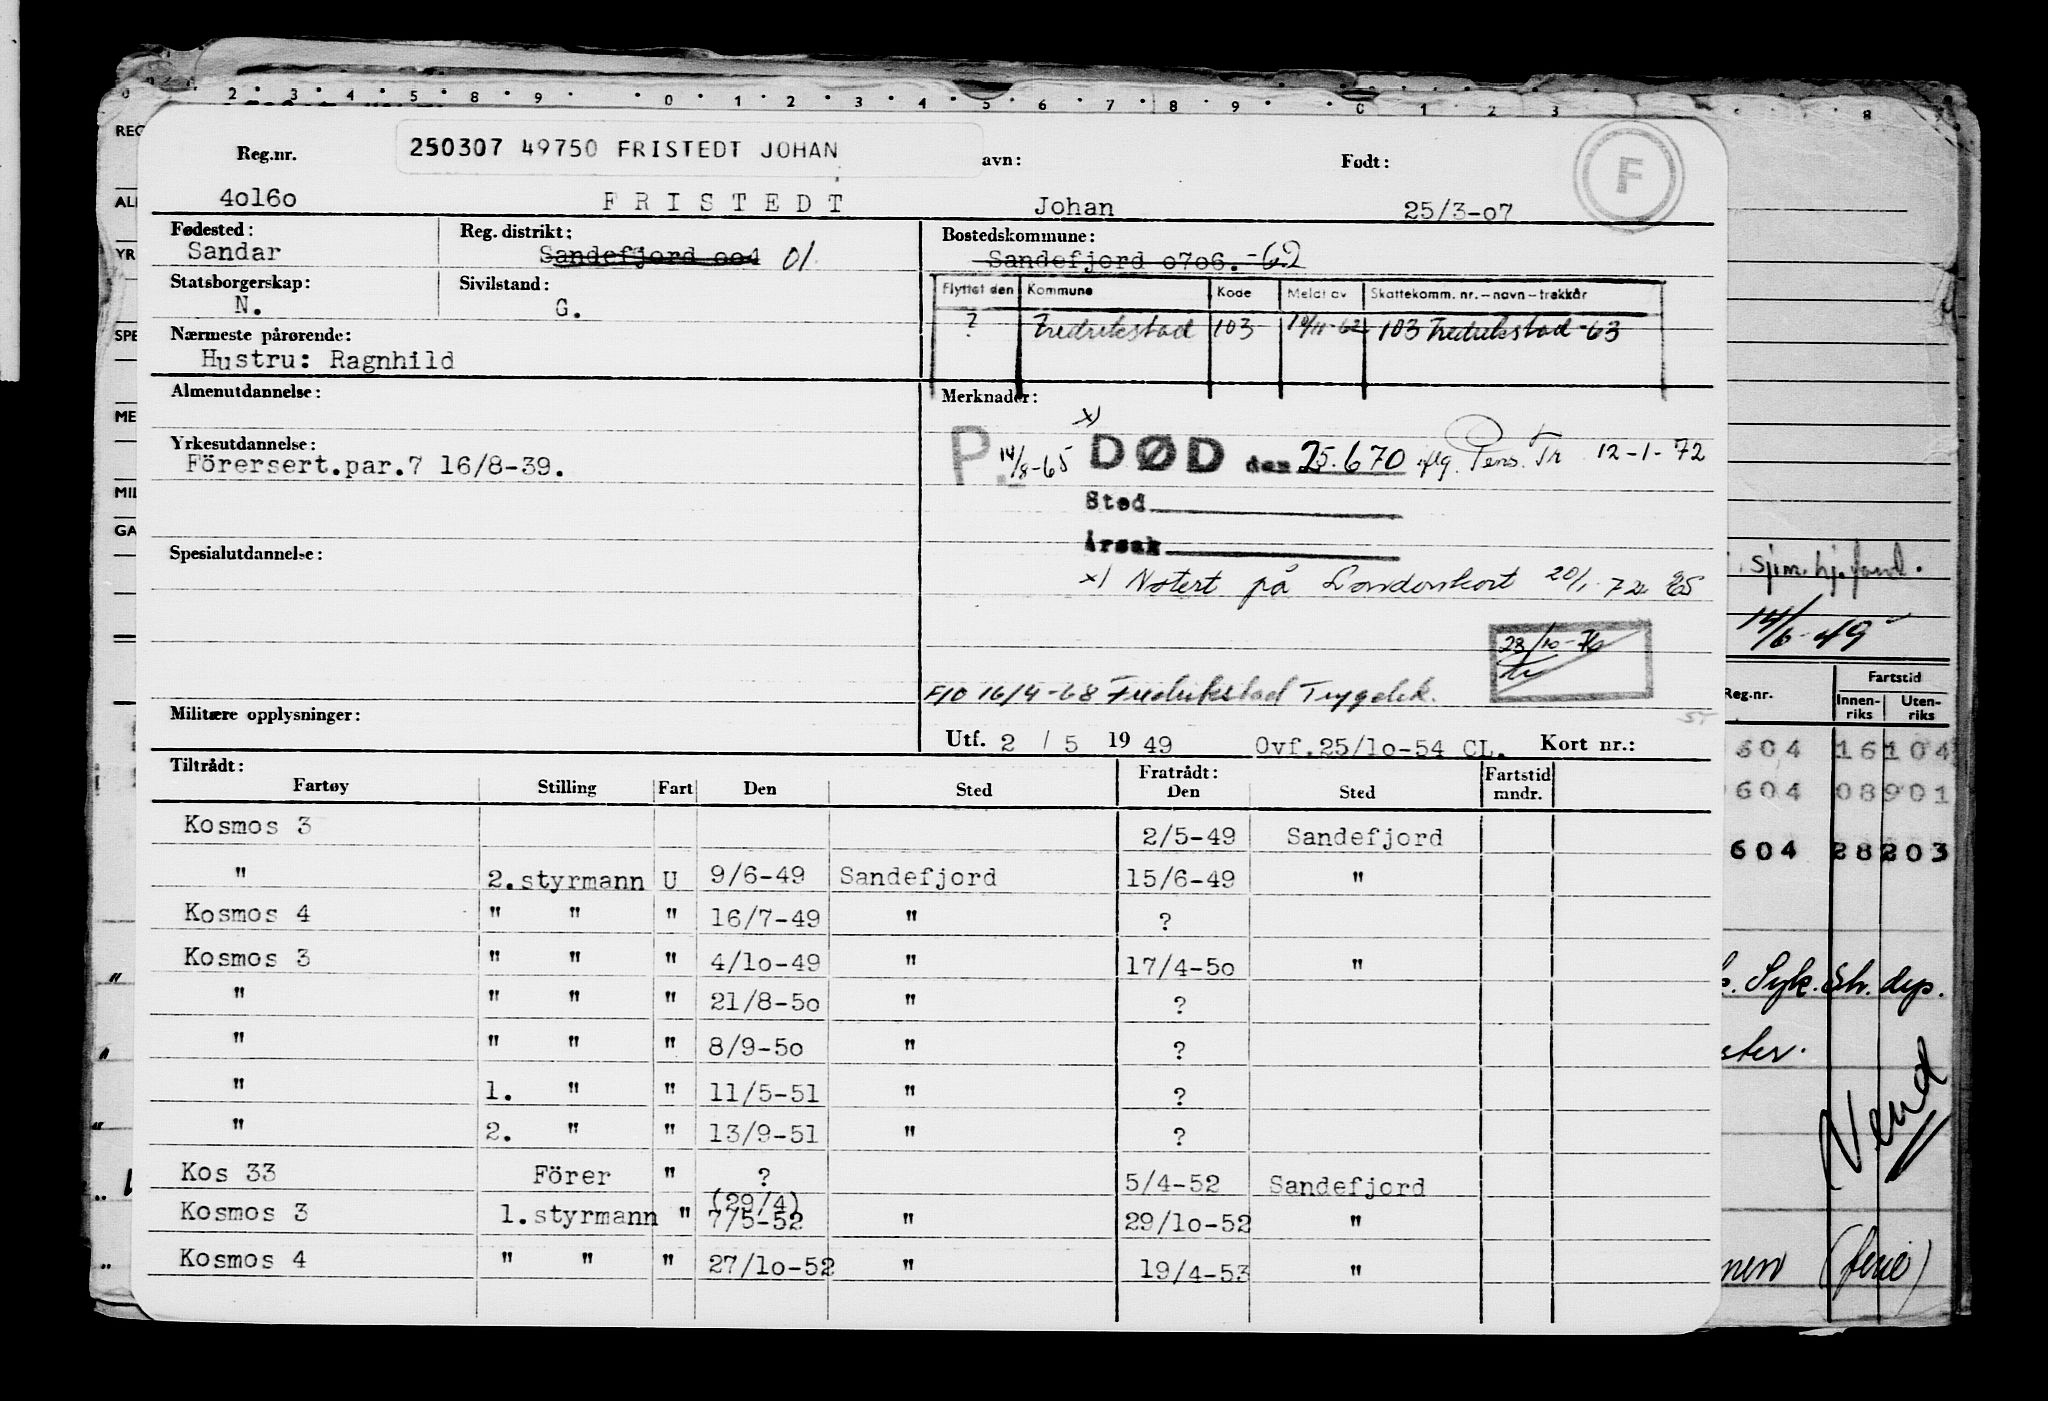 250307 49750 FRISTEDT JOHAN
Reg.nr. avn: Født: F
4o16o F R I S T E D T Johan 25/3-o7
Fødested: Reg. distrikt: Bostedskommune:
Sandar Sandefjord oo4 01 Sandefjord o7o6. -62
Statsborgerskap: Sivilstand: Flyttet den Kommune Kode Meldt av Skattekomm. nr. – navn – trekkår
N. G.
? Fredrikstad 103 19/11-62 103 Fredrikstad -63
Nærmeste pårørende:
Hustru: Ragnhild
Almenutdannelse: Merknader:
x)
Yrkesutdannelse: P. 14/8-65 DØD den 25.6 70 iflg. Pens. Tr 12-1-72
Förersert.par.7 16/8-39.
Sted
Årsak
Spesialutdannelse:
x) Notert på Londonkort 20/1.72
23/10-76
F10 16/4-68 Fredrikstad Trygdek.
Militære opplysninger:
Utf. 2 / 5 19 49 Ovf.25/1o-54 CL. Kort nr.:
Tiltrådt: Fratrådt:
Fartøy Stilling Fart Den Sted Den Sted Fartstid mndr.
Kosmos 3 2/5-49 Sandefjord
" 2.styrmann U 9/6-49 Sandefjord 15/6-49 "
Kosmos 4 " " " 16/7-49 " ?
Kosmos 3 " " " 4/1o-49 " 17/4-5o "
" " " " 21/8-5o " ?
" " " " 8/9-5o " ?
" 1. " " 11/5-51 " ?
" 2. " " 13/9-51 " ?
Kos 33 Förer " ? 5/4-52 Sandefjord
(29/4)
Kosmos 3 1.styrmann " 7/5-52 " 29/1o-52 "
Kosmos 4 " " " 27/1o-52 " 19/4-53 "
REG
ALI
YR
SPE
ME
MIL
GA
sjm. hj. fond.
14/6-49
Reg.nr. Fartstid
Innenriks Utenriks
604 16 104
604 08 901
604 28 203
Syk. dep.
Vend
(ferie)